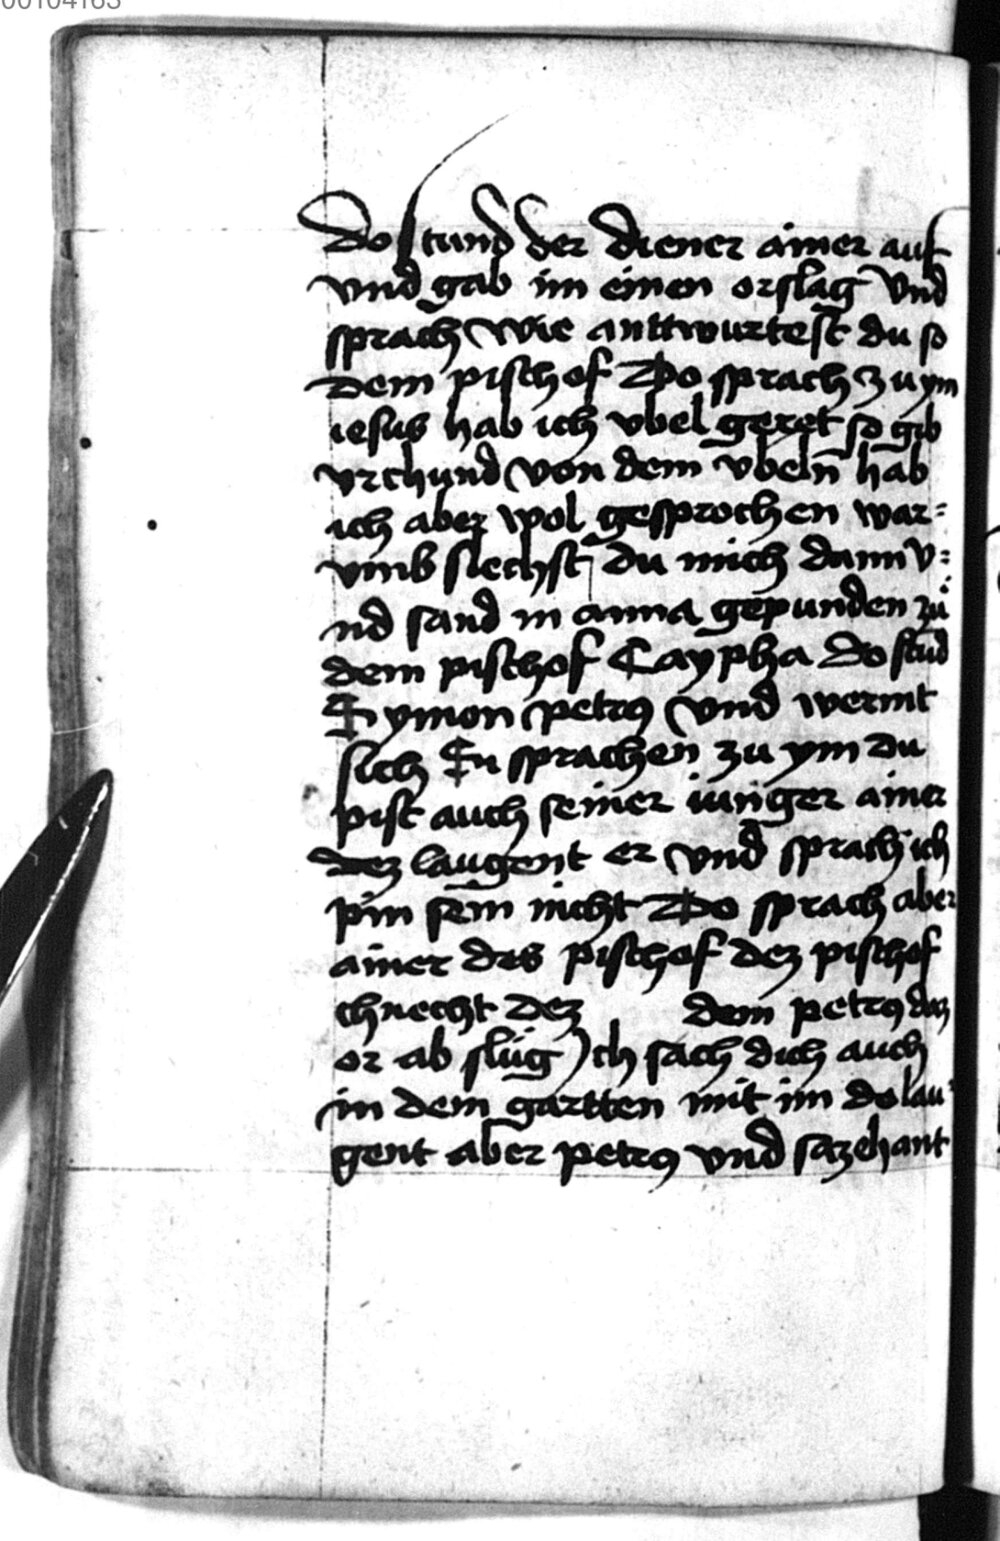 00104163
Do stund der diener ainer auf
vnd gab im einen orslag Vnd
sprach Wie anttwurtest du so
dem pischof Do sprach zu ym
iesus hab ich vbel geret so gib
vrchund von dem vbeln̄ hab
ich aber wol gesprochen war=
vmb slechst du mich dann v=
nd sand in anna gepunden zu
dem pischof Caypha Do stūd
Symon petrus vnd wermt
sich Sy sprachen zu ym du
pist auch seiner iunger ainer
dez laugent er vnd sprach ich
pin sein nicht Do sprach aber
ainer des pischof dez pischof
chnecht dez dem petrus daz
or ab slug Ich sach dich auch
in dem gartten mit im do lau
gent aber petrus vnd sazehant